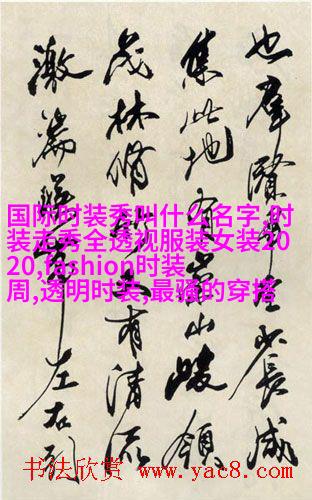 也群賢畢至少長咸
集此地有崇山峻領
茂林修又有清流
激湍左右引
国际时装秀叫什么名字,时
装走秀全透视服装女装20
20,fashion时装
周,透明时装,最骚的穿搭
书法欣赏 www.yac8.com